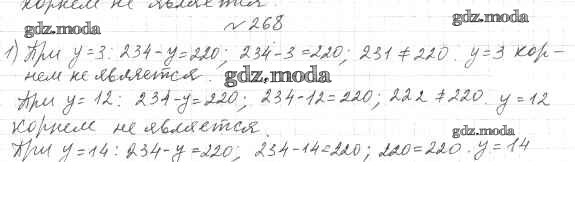 корнем не является.
№ 268
gdz.moda
gdz.moda
1) При y=3: 234-y=220; 234-3=220; 231≠220. y=3 кор-
нем не является.
gdz.moda
При y=12: 234-y=220; 234-12=220; 222≠220. y=12
корнем не является.
gdz.moda
При y=14: 234-y=220; 234-14=220; 220=220. y=14